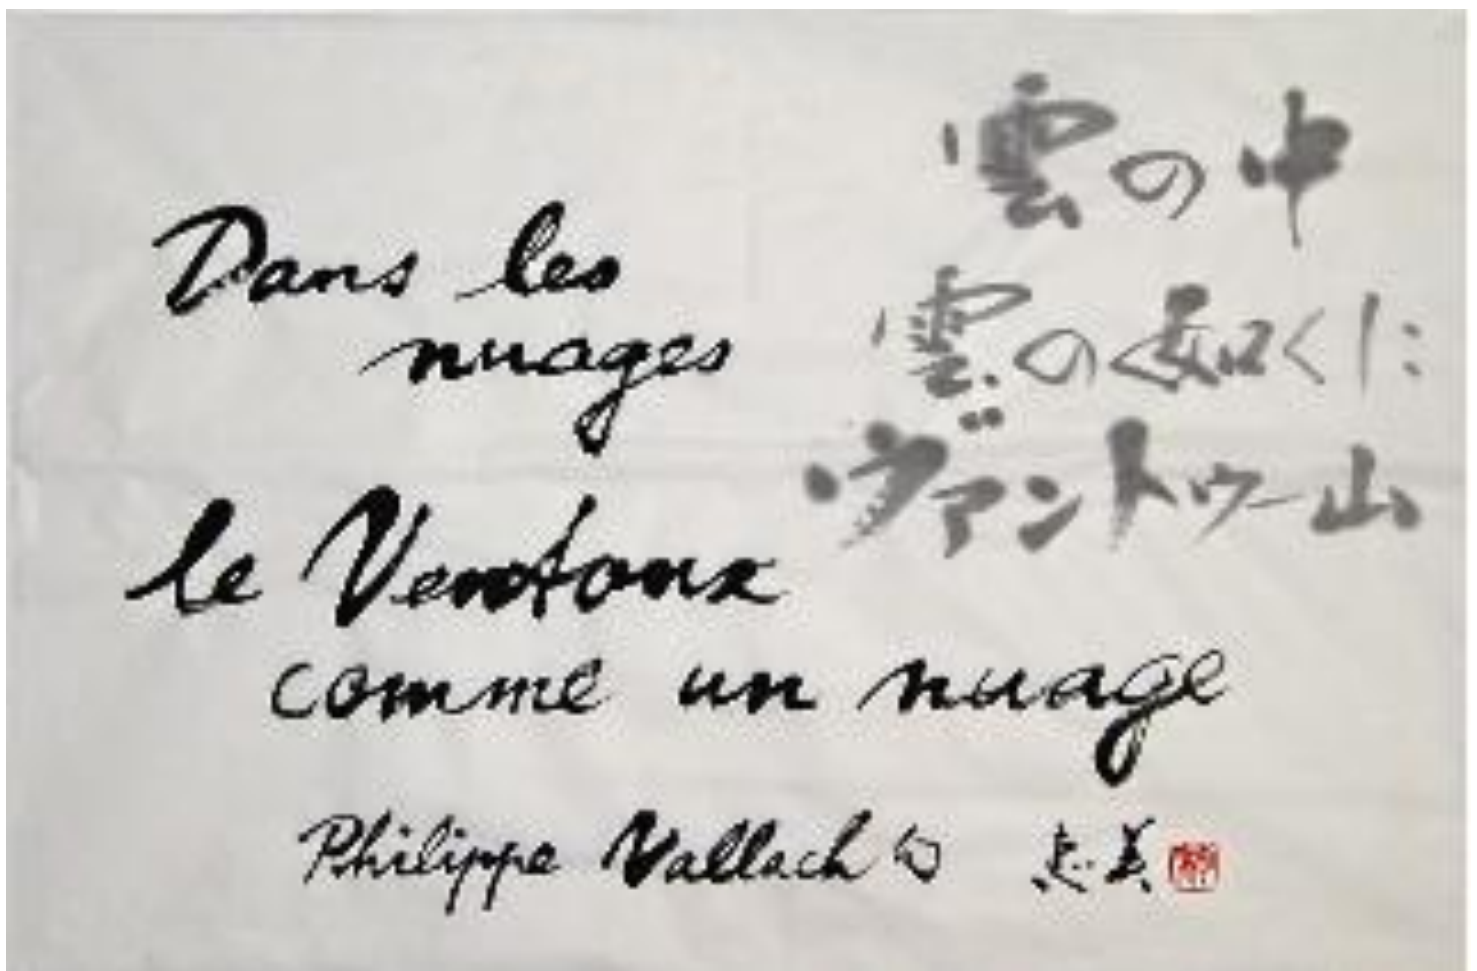 Dans les
nuages
le Ventoux
comme un nuage
雲の中
雲の如くに
ヴァントゥー山
Philippe Vallach 句